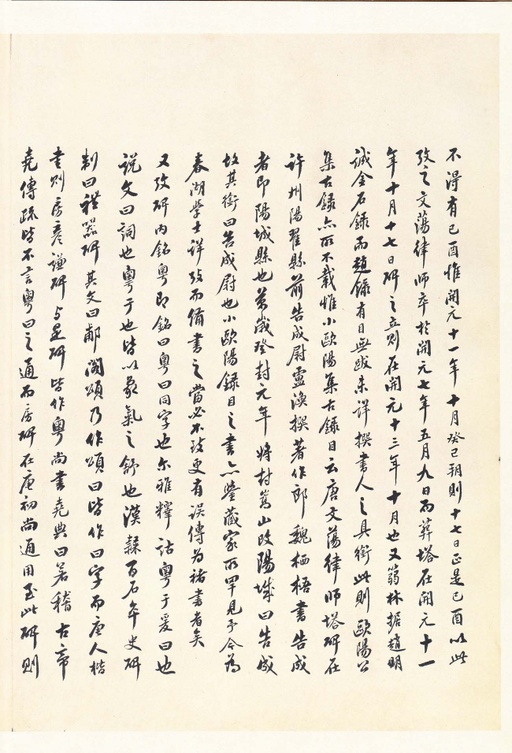 不得有己酉惟開元十一年十月癸巳朔則十七日正是己酉以此
攷之文蕩律師卒於開元七年五月九日而葬塔在開元十一
年十月十七日碑之立則在開元十三年十月也又翁林据趙明
誠金石錄而趙錄有目無跋未詳撰書人之具銜此則歐陽公
集古錄亦所不載惟小歐陽集古錄目云唐文蕩律師塔碑在
許州陽翟縣前告成尉盧渙撰著作郎魏栖梧書告成
者即陽城縣也萬歲登封元年將封嵩山改陽城曰告成
故其銜曰告成尉也小歐陽錄目之書亦鑒藏家所罕見予今為
春湖學士詳攷而備書之當必不致更有誤傳為褚書者矣
又攷碑內銘粤即銘曰粤曰同字也尒雅釋詁粤于爰曰也
說文曰詞也粤于也皆以象气之舒也漢隸百石卒史碑
制曰禮器碑其文曰郙閣頌乃作頌曰皆作曰字而唐人楷
書則房彥謙碑与是碑皆作粤尚書堯典曰若稽古帝
堯傳疏皆不言粤曰之通而房碑在唐初尚通用至此碑則